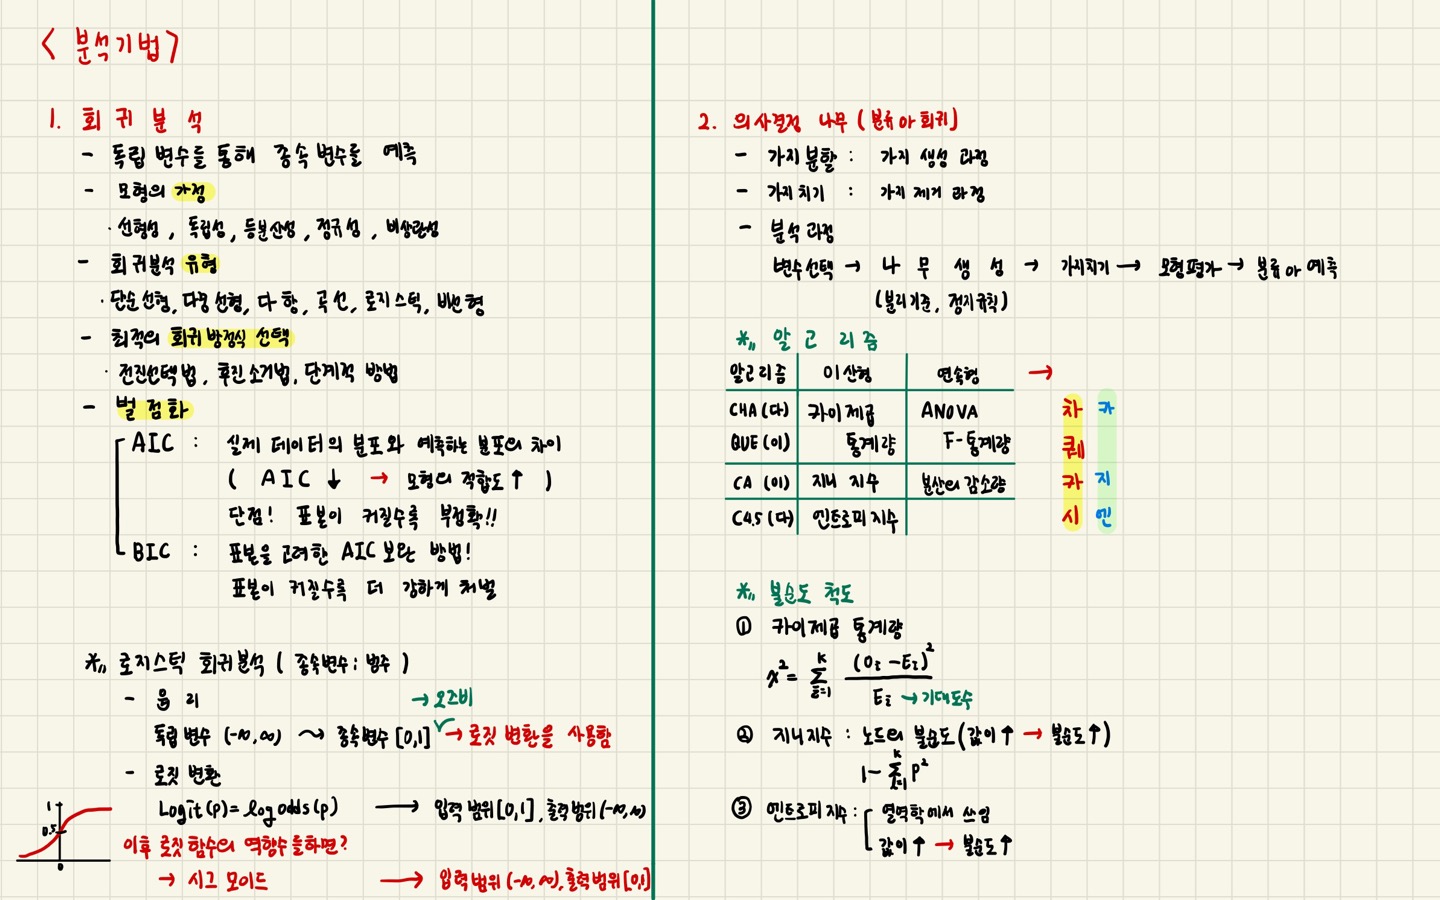 < 분석기법>
1. 회귀분석
- 독립변수를 통해 종속변수를 예측
- 모형의 가정
· 선형성, 독립성, 등분산성, 정규성, 비상관성
- 회귀분석 유형
· 단순선형, 다중선형, 다항, 곡선, 로지스틱, 비선형
- 최적의 회귀방정식 선택
· 전진선택법, 후진소거법, 단계적 방법
- 벌점화
AIC : 실제 데이터의 분포와 예측하는 분포의 차이
( AIC ↓ → 모형의 적합도 ↑ )
단점! 표본이 커질수록 부정확!!
BIC : 표본을 고려한 AIC 보완 방법!
표본이 커질수록 더 강하게 처벌
※ 로지스틱 회귀분석 ( 종속변수 : 범주 )
- 윤리
→ 오즈비
독립변수 (-∞,∞) ~> 종속변수 [0,1] → 로짓 변환을 사용함
- 로짓 변환
Logit(p) = log odds(p) → 입력 범위[0,1], 출력범위(-∞,∞)
1
0.5
0
이후 로짓 함수의 역함수를하면?
→ 시그모이드 → 입력범위(-∞,∞), 출력범위[0,1]
2. 의사결정 나무 (분류 or 회귀)
- 가지분할 : 가지 생성 과정
- 가지치기 : 가지 제거 과정
- 분석과정
변수선택 → 나무생성 → 가지치기 → 모형평가 → 분류 or 예측
(분리기준, 정지규칙)
※ 알고리즘
알고리즘 이산형 연속형 →
CHA(다) 카이제곱 ANOVA 차 카
QUE(이) 통계량 F-통계량 퀘
CA (이) 지니 지수 분산의 감소량 카 지
C4.5(다) 엔트로피지수 시 엔
※ 불순도 척도
① 카이제곱 통계량
χ² = Σ (Oi - Ei)² / Ei → 기대도수
k
i=1
② 지니지수 : 노드의 불순도(값이↑ → 불순도↑)
1 - Σ p²
k
i=1
③ 엔트로피지수 : 열역학에서 쓰임
값이↑ → 불순도↑